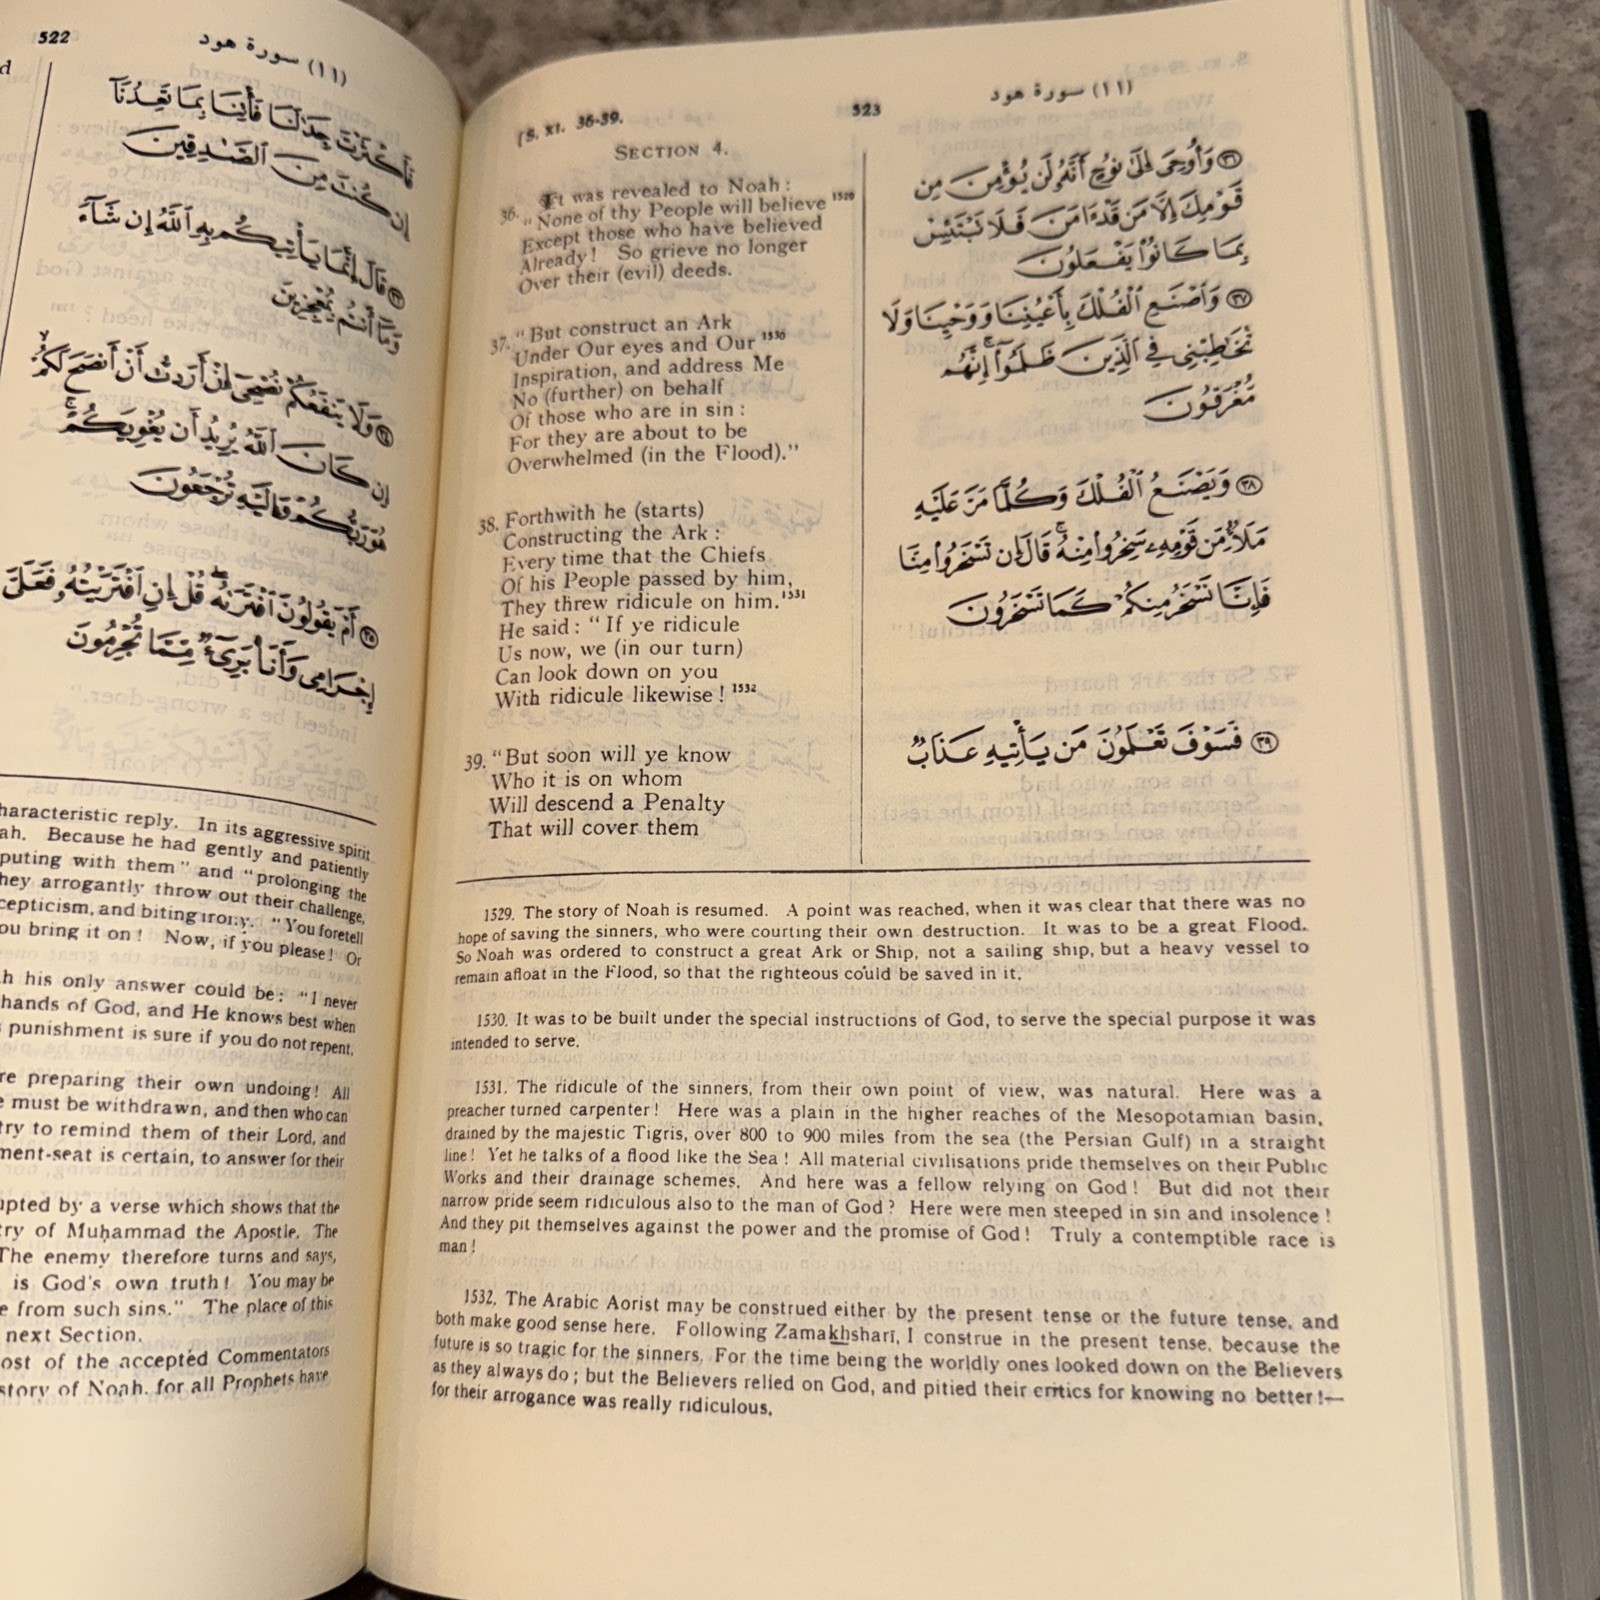 522
(١١) سورة هود
فَأَكْثَرْتَ جِدَٰلَنَا فَأْتِنَا بِمَا تَعِدُنَآ
إِن كُنتَ مِنَ ٱلصَّٰدِقِينَ
٣٣ قَالَ إِنَّمَا يَأْتِيكُم بِهِ ٱللَّهُ إِن شَآءَ
وَمَآ أَنتُم بِمُعْجِزِينَ
٣٤ وَلَا يَنفَعُكُمْ نُصْحِىٓ إِنْ أَرَدتُّ أَنْ أَنصَحَ لَكُمْ
إِن كَانَ ٱللَّهُ يُرِيدُ أَن يُغْوِيَكُمْ
هُوَ رَبُّكُمْ وَإِلَيْهِ تُرْجَعُونَ
٣٥ أَمْ يَقُولُونَ ٱفْتَرَىٰهُ قُلْ إِنِ ٱفْتَرَيْتُهُۥ فَعَلَىَّ
إِجْرَامِى وَأَنَا۠ بَرِىٓءٌ مِّمَّا تُجْرِمُونَ
haracteristic reply. In its aggressive spirit
ah. Because he had gently and patiently
puting with them" and "prolonging the
hey arrogantly throw out their challenge,
cepticism, and biting irony. "You foretell
ou bring it on! Now, if you please! Or
h his only answer could be: "I never
hands of God, and He knows best when
punishment is sure if you do not repent,
re preparing their own undoing! All
e must be withdrawn, and then who can
try to remind them of their Lord, and
ment-seat is certain, to answer for their
upted by a verse which shows that the
try of Muḥammad the Apostle. The
The enemy therefore turns and says,
is God's own truth! You may be
e from such sins." The place of this
next Section.
ost of the accepted Commentators
story of Noah, for all Prophets have
[S. XI. 36-39.
523
(١١) سورة هود
SECTION 4.
36. It was revealed to Noah:
"None of thy People will believe 1529
Except those who have believed
Already! So grieve no longer
Over their (evil) deeds.
37. "But construct an Ark
Under Our eyes and Our 1530
Inspiration, and address Me
No (further) on behalf
Of those who are in sin:
For they are about to be
Overwhelmed (in the Flood)."
38. Forthwith he (starts)
Constructing the Ark:
Every time that the Chiefs
Of his People passed by him,
They threw ridicule on him.1531
He said: "If ye ridicule
Us now, we (in our turn)
Can look down on you
With ridicule likewise! 1532
39. "But soon will ye know
Who it is on whom
Will descend a Penalty
That will cover them
٣٦ وَأُوحِىَ إِلَىٰ نُوحٍ أَنَّهُۥ لَن يُؤْمِنَ مِن
قَوْمِكَ إِلَّا مَن قَدْ ءَامَنَ فَلَا تَبْتَئِسْ
بِمَا كَانُوا۟ يَفْعَلُونَ
٣٧ وَٱصْنَعِ ٱلْفُلْكَ بِأَعْيُنِنَا وَوَحْيِنَا وَلَا
تُخَٰطِبْنِى فِى ٱلَّذِينَ ظَلَمُوٓا۟ إِنَّهُم
مُّغْرَقُونَ
٣٨ وَيَصْنَعُ ٱلْفُلْكَ وَكُلَّمَا مَرَّ عَلَيْهِ
مَلَأٌ مِّن قَوْمِهِۦ سَخِرُوا۟ مِنْهُ قَالَ إِن تَسْخَرُوا۟ مِنَّا
فَإِنَّا نَسْخَرُ مِنكُمْ كَمَا تَسْخَرُونَ
٣٩ فَسَوْفَ تَعْلَمُونَ مَن يَأْتِيهِ عَذَابٌ
1529. The story of Noah is resumed. A point was reached, when it was clear that there was no
hope of saving the sinners, who were courting their own destruction. It was to be a great Flood.
So Noah was ordered to construct a great Ark or Ship, not a sailing ship, but a heavy vessel to
remain afloat in the Flood, so that the righteous could be saved in it.
1530. It was to be built under the special instructions of God, to serve the special purpose it was
intended to serve.
1531. The ridicule of the sinners, from their own point of view, was natural. Here was a
preacher turned carpenter! Here was a plain in the higher reaches of the Mesopotamian basin,
drained by the majestic Tigris, over 800 to 900 miles from the sea (the Persian Gulf) in a straight
line! Yet he talks of a flood like the Sea! All material civilisations pride themselves on their Public
Works and their drainage schemes. And here was a fellow relying on God! But did not their
narrow pride seem ridiculous also to the man of God? Here were men steeped in sin and insolence!
And they pit themselves against the power and the promise of God! Truly a contemptible race is
man!
1532. The Arabic Aorist may be construed either by the present tense or the future tense, and
both make good sense here. Following Zamakhsharī, I construe in the present tense, because the
future is so tragic for the sinners. For the time being the worldly ones looked down on the Believers
as they always do; but the Believers relied on God, and pitied their critics for knowing no better!—
for their arrogance was really ridiculous.